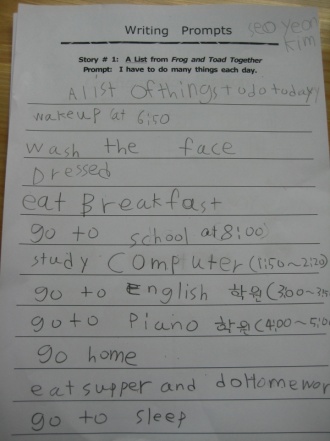 Writing Prompts
seo yeon
kim
Story # 1: A List from Frog and Toad Together
Prompt: I have to do many things each day.
A list of things to do today
wake up at 6:50
wash the face
Dressed
eat Breakfast
go to school at 8:00
study Computer (1:50~2:20)
go to English 학원 (3:00~3:50
go to Piano 학원 (4:00~5:00
go home
eat supper and do Homewor
go to sleep